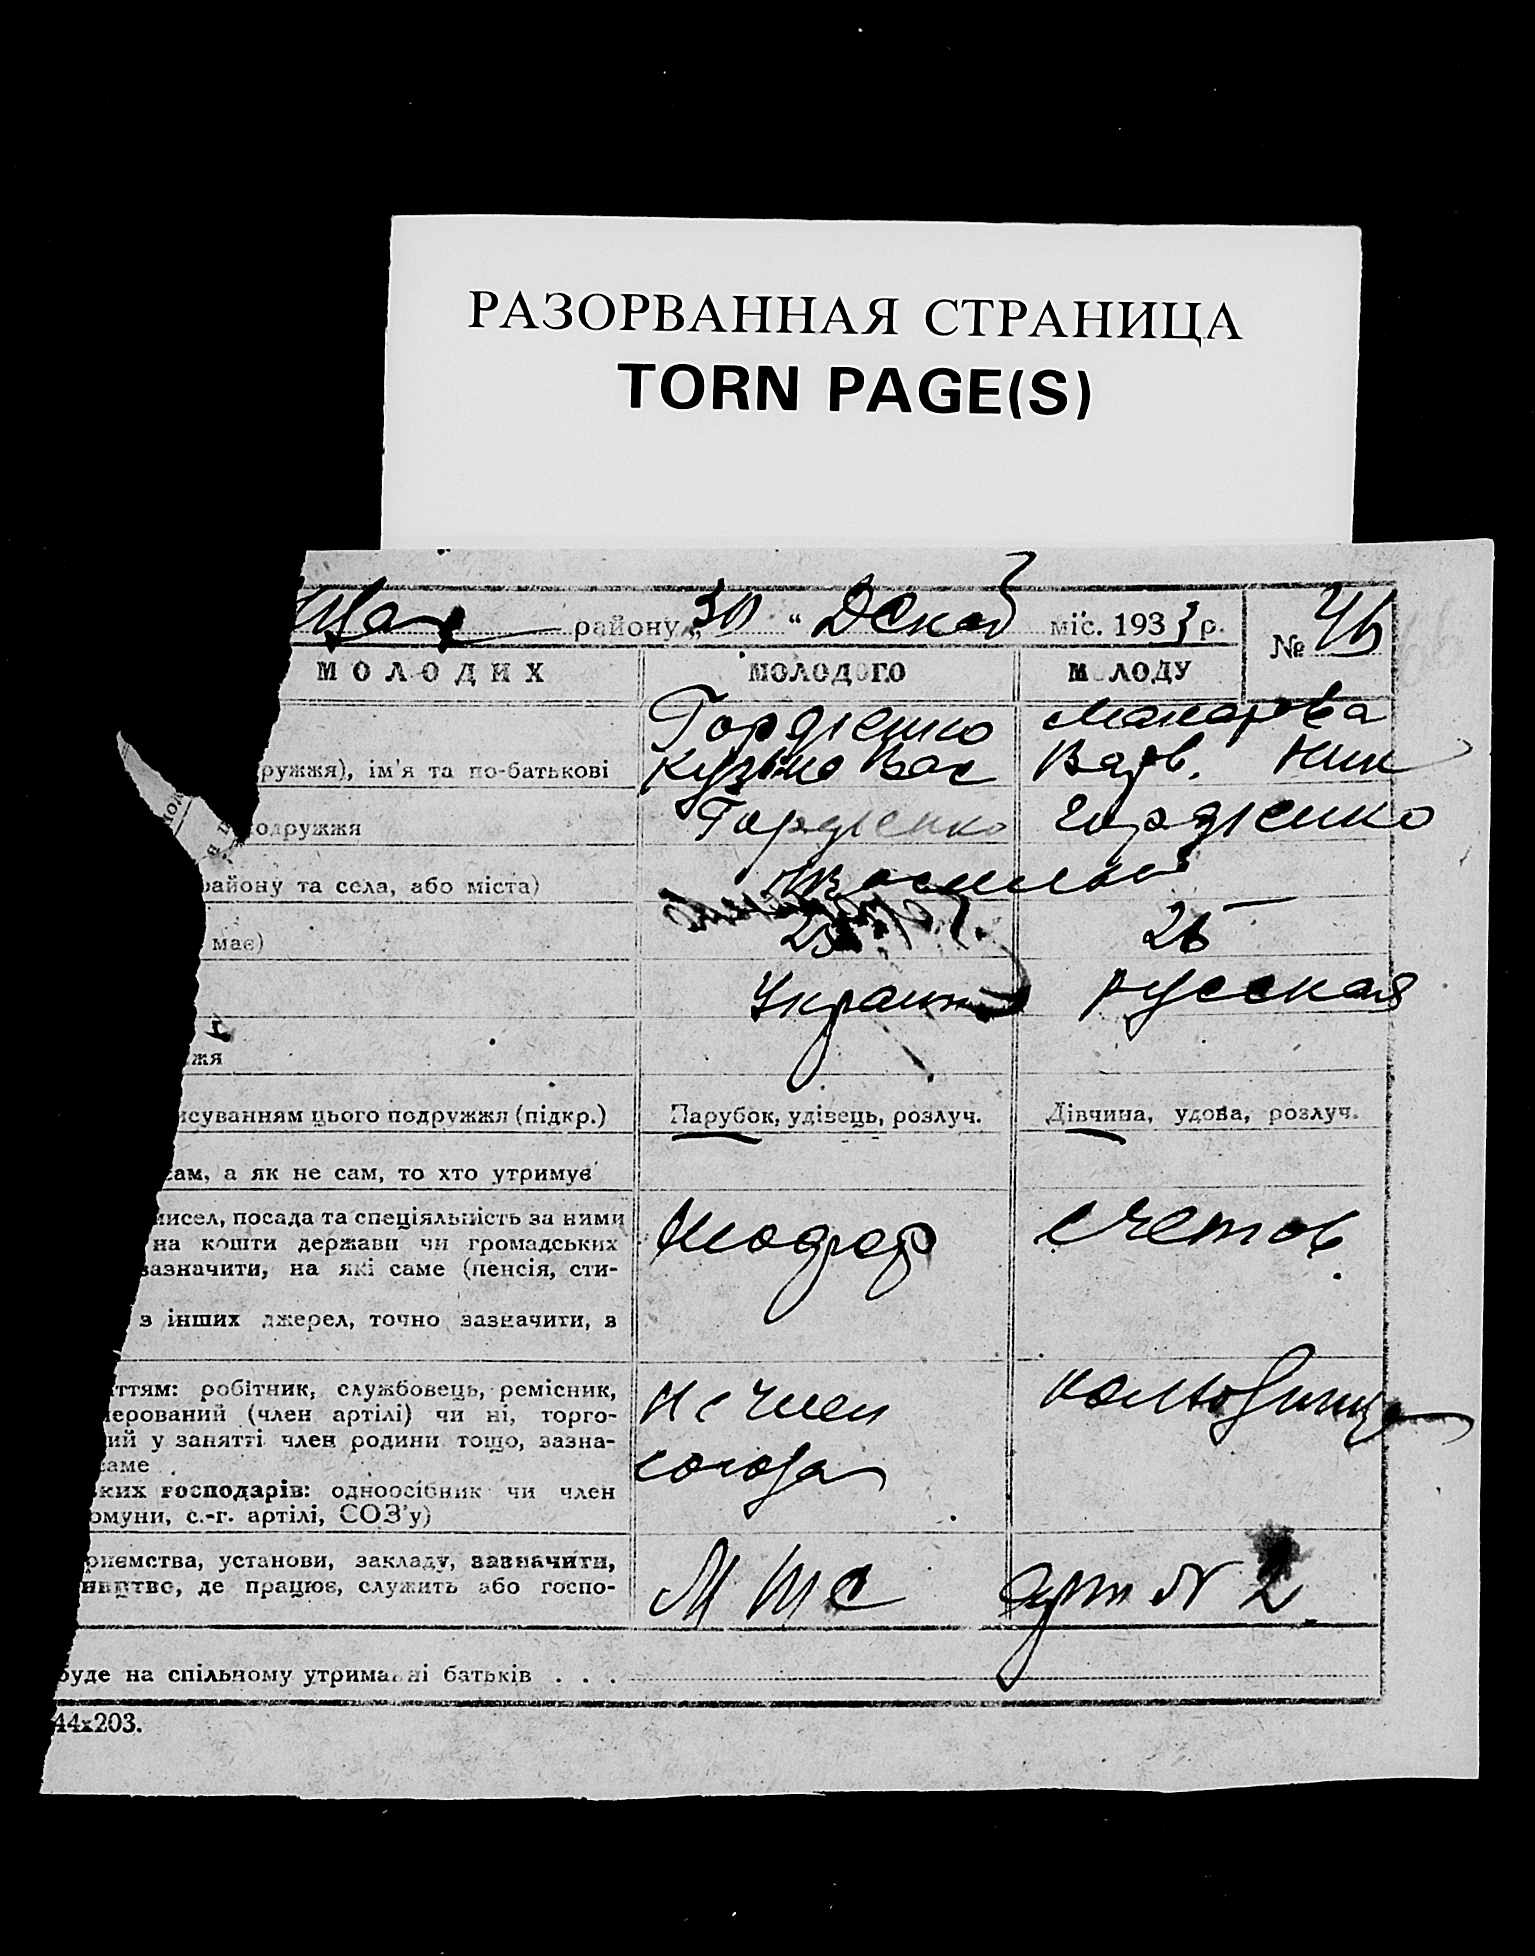 РАЗОРВАННАЯ СТРАНИЦА
TORN PAGE(S)
району „30“ Декаб міс. 1933 р. № 46
МОЛОДИХ МОЛОДОГО МОЛОДУ
Гордіенко Макарова
ружжя), ім'я та по-батькові Кузьма Вас Варв. Ник
одружжя Гордіенко Гордіенко
району та села, або міста)
має) 25 26
Украин русская
жя
исуванням цього подружжя (підкр.) Парубок, удівець, розлуч. Дівчина, удова, розлуч.
сам, а як не сам, то хто утримує
мисел, посада та спеціяльність за ними счетов.
на кошти держави чи громадських
зазначити, на які саме (пенсія, сти-
з інших джерел, точно зазначити, з
ттям: робітник, службовець, ремісник,
нерований (член артілі) чи ні, торго- Не член
ний у занятті член родини тощо, зазна-
саме союза
ських господарів: одноосібник чи член
омуни, с.-г. артілі, СОЗ'у)
риємства, установи, закладу, зазначити,
ництво, де працює, служить або госпо- МТС арт № 2.
буде на спільному утриманні батьків . . .
44x203.